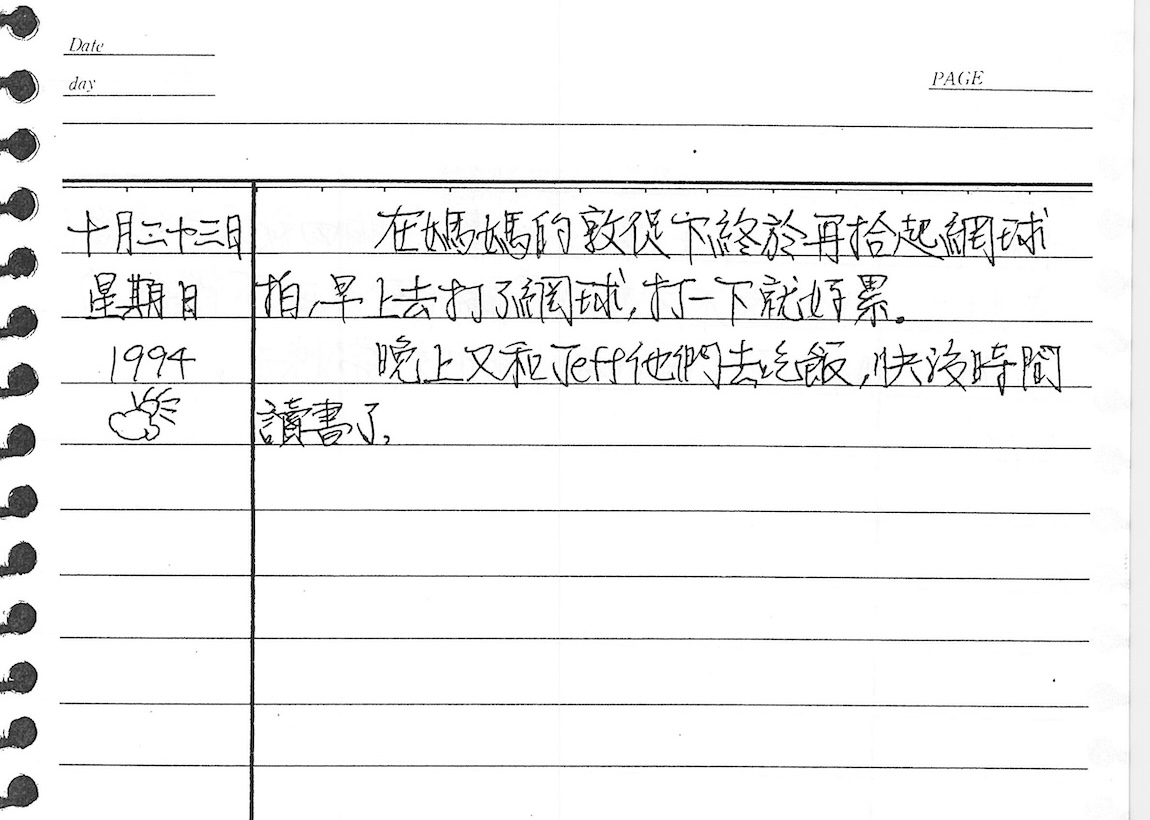 Date
day
PAGE
十月二十三日
星期日
1994
在媽媽的敦促下終於再拾起網球
拍,早上去打了網球,打一下就好累。
晚上又和Jeff他們去吃飯,快沒時間
讀書了,